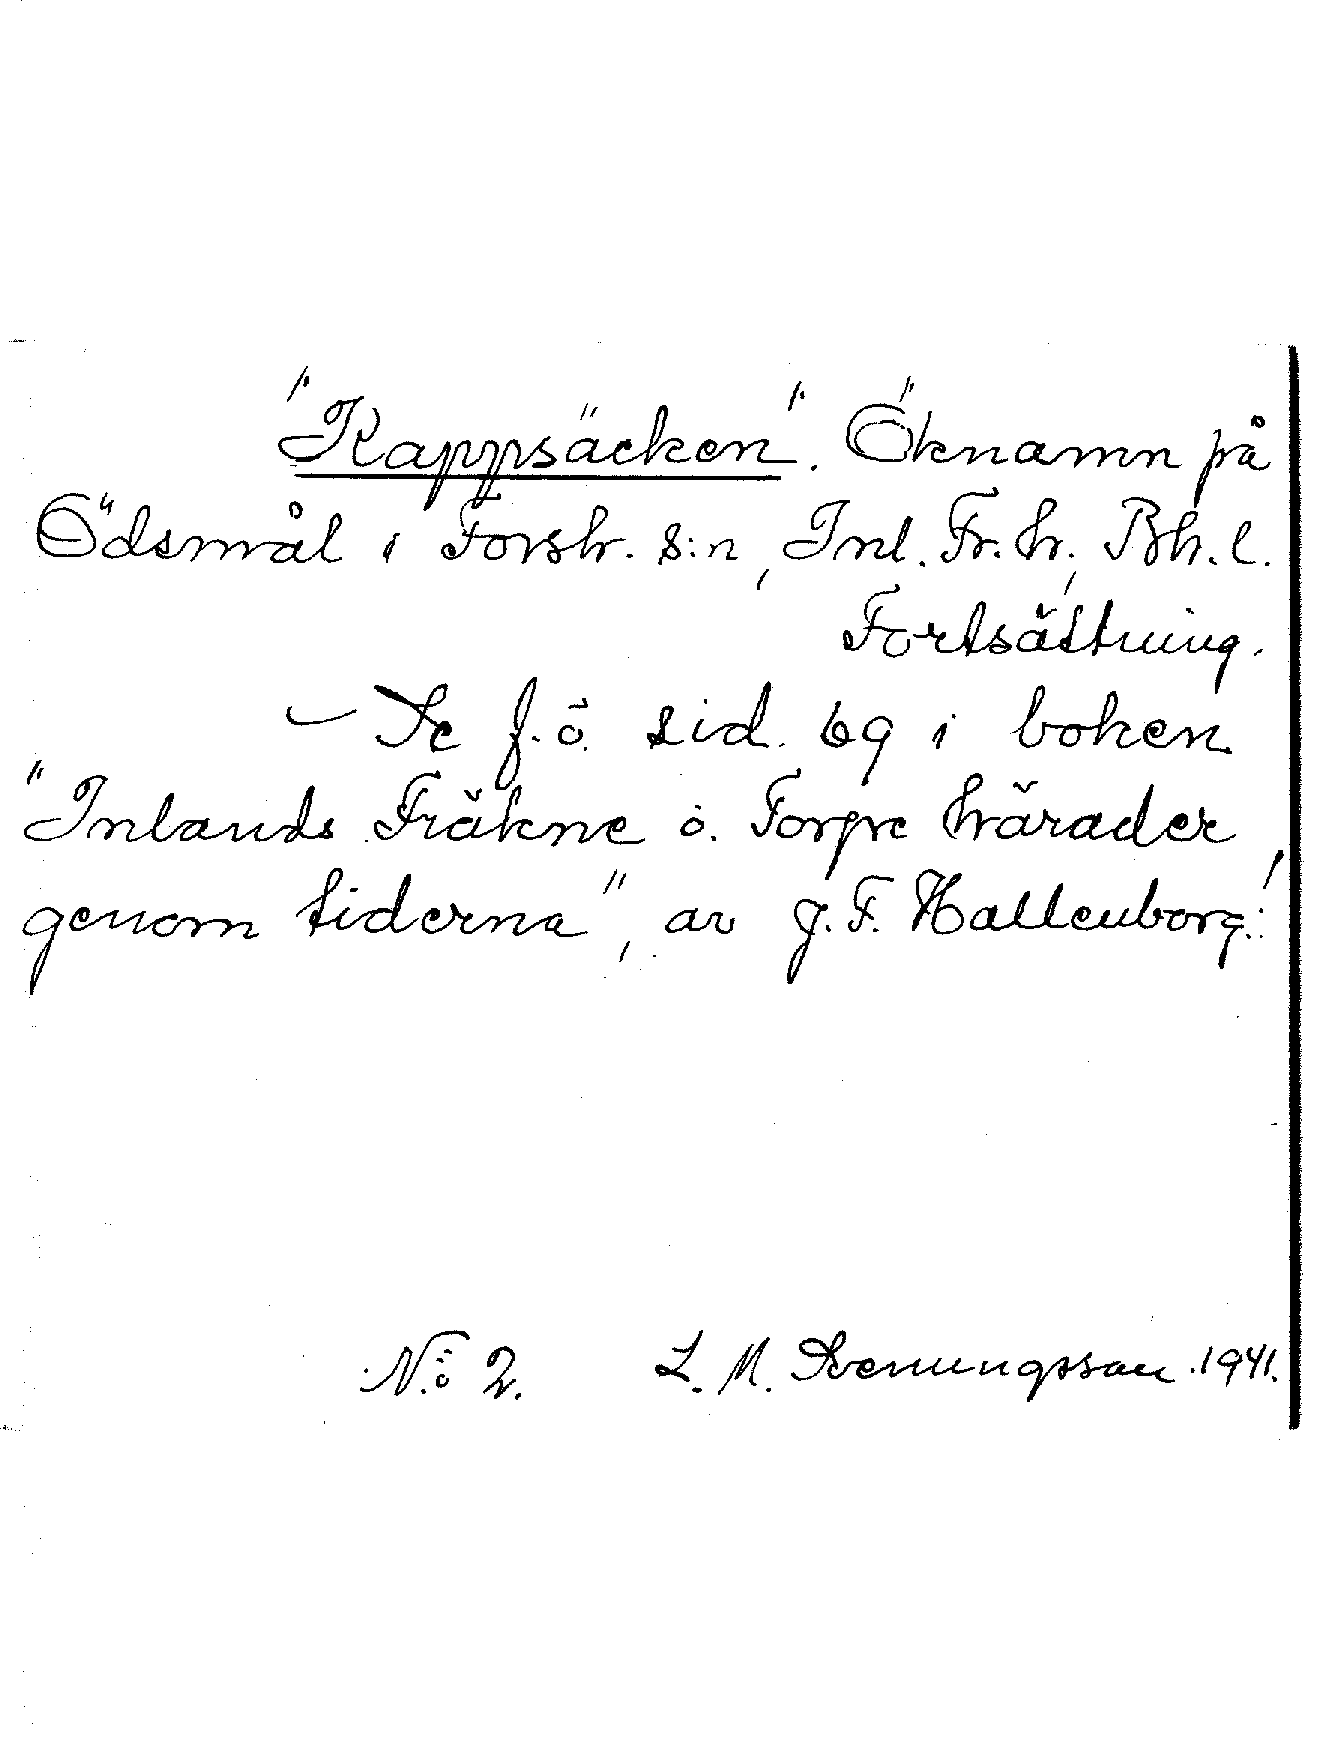 "Kappsäcken". Öknamn på
Ödsmål i Forsh. s:n, Inl. Fr. hr, Bh. l.
Fortsättning.
— Se f. ö. sid. 69 i boken
"Inlands Fräkne o. Torpe härader
genom tiderna", av J. F. Hallenborg.!
N:o 2. L. M. Svenungsson .1941.